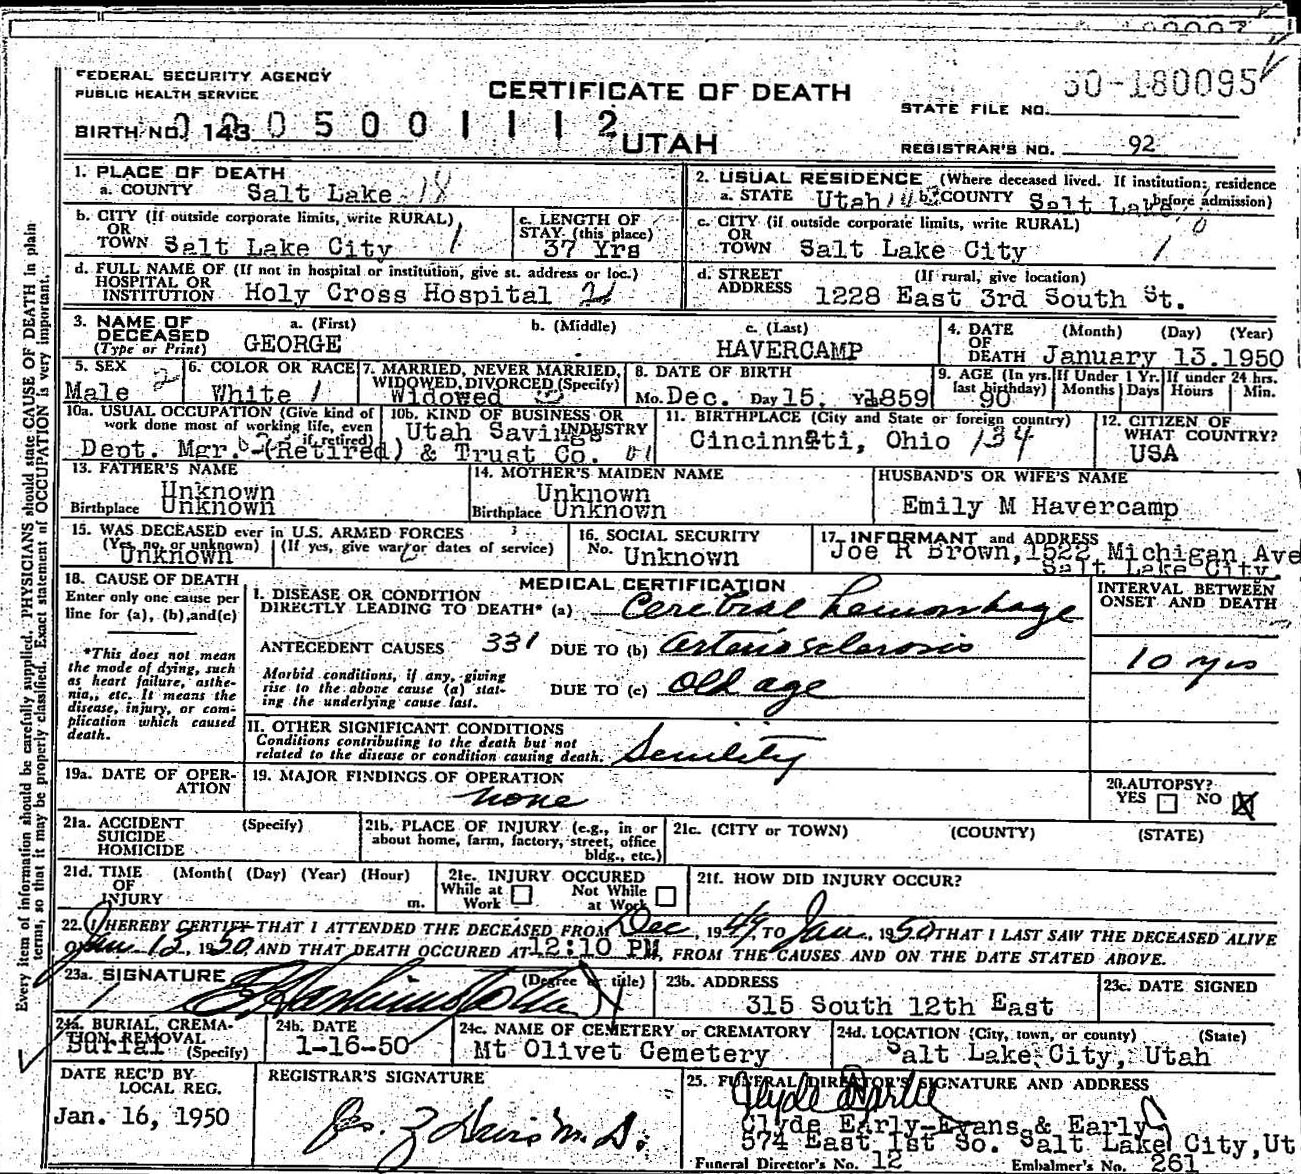 FEDERAL SECURITY AGENCY
PUBLIC HEALTH SERVICE
CERTIFICATE OF DEATH
UTAH
BIRTH NO. 143 0005001112
STATE FILE NO. 50-180095
REGISTRAR'S NO. 92
1. PLACE OF DEATH
a. COUNTY Salt Lake 18
b. CITY (If outside corporate limits, write RURAL)
OR
TOWN Salt Lake City 1
c. LENGTH OF
STAY (this place)
37 Yrs
d. FULL NAME OF (If not in hospital or institution, give st. address or loc.)
HOSPITAL OR
INSTITUTION Holy Cross Hospital
2. USUAL RESIDENCE (Where deceased lived. If institution; residence
before admission)
a. STATE Utah b. COUNTY Salt Lake
c. CITY (if outside corporate limits, write RURAL)
OR
TOWN Salt Lake City 1
d. STREET (If rural, give location)
ADDRESS 1228 East 3rd South St.
3. NAME OF DECEASED
(Type or Print)
a. (First) b. (Middle) c. (Last)
GEORGE HAVERCAMP
4. DATE (Month) (Day) (Year)
OF
DEATH January 13.1950
5. SEX
Male 2
6. COLOR OR RACE
White 1
7. MARRIED, NEVER MARRIED,
WIDOWED, DIVORCED (Specify)
Widowed
8. DATE OF BIRTH
Mo. Dec. Day 15. Yr. 1859
9. AGE (In yrs. last birthday)
90
If Under 1 Yr. Months Days
If under 24 hrs. Hours Min.
10a. USUAL OCCUPATION (Give kind of
work done most of working life, even
if retired)
Dept. Mgr. (Retired)
10b. KIND OF BUSINESS OR
INDUSTRY
Utah Savings
& Trust Co.
11. BIRTHPLACE (City and State or foreign country)
Cincinnati, Ohio 134
12. CITIZEN OF
WHAT COUNTRY?
USA
13. FATHER'S NAME
Unknown
Birthplace Unknown
14. MOTHER'S MAIDEN NAME
Unknown
Birthplace Unknown
HUSBAND'S OR WIFE'S NAME
Emily M Havercamp
15. WAS DECEASED ever in U.S. ARMED FORCES
(Yes, no, or unknown) (If yes, give war or dates of service)
Unknown
16. SOCIAL SECURITY
No. Unknown
17. INFORMANT and ADDRESS
Joe R Brown, 1522 Michigan Ave
Salt Lake City.
18. CAUSE OF DEATH
Enter only one cause per
line for (a), (b), and (c)
*This does not mean
the mode of dying, such
as heart failure, asthe-
nia,, etc. It means the
disease, injury, or com-
plication which caused
death.
MEDICAL CERTIFICATION
INTERVAL BETWEEN
ONSET AND DEATH
I. DISEASE OR CONDITION
DIRECTLY LEADING TO DEATH* (a) Cerebral hemorrhage
ANTECEDENT CAUSES 331 DUE TO (b) arteriosclerosis 10 yrs
Morbid conditions, if any, giving
rise to the above cause (a) stat-
ing the underlying cause last.
DUE TO (c) Old age
II. OTHER SIGNIFICANT CONDITIONS
Conditions contributing to the death but not
related to the disease or condition causing death. Senility
19a. DATE OF OPER-
ATION
19. MAJOR FINDINGS OF OPERATION
none
20. AUTOPSY?
YES NO X
21a. ACCIDENT (Specify)
SUICIDE
HOMICIDE
21b. PLACE OF INJURY (e.g., in or
about home, farm, factory, street, office
bldg., etc.)
21c. (CITY or TOWN) (COUNTY) (STATE)
21d. TIME (Month( (Day) (Year) (Hour)
OF
INJURY m.
21e. INJURY OCCURED
While at Work Not While at Work
21f. HOW DID INJURY OCCUR?
22. I HEREBY CERTIFY THAT I ATTENDED THE DECEASED FROM Dec, 1949, TO Jan, 1950 THAT I LAST SAW THE DECEASED ALIVE
ON Jan. 13, 1950 AND THAT DEATH OCCURED AT 12:10 PM, FROM THE CAUSES AND ON THE DATE STATED ABOVE.
23a. SIGNATURE (Degree or title)
23b. ADDRESS
315 South 12th East
23c. DATE SIGNED
24a. BURIAL, CREMA-
TION REMOVAL
Burial (Specify)
24b. DATE
1-16-50
24c. NAME OF CEMETERY or CREMATORY
Mt Olivet Cemetery
24d. LOCATION (City, town, or county) (State)
Salt Lake City, Utah
DATE REC'D BY
LOCAL REG.
Jan. 16, 1950
REGISTRAR'S SIGNATURE
25. FUNERAL DIRECTOR'S SIGNATURE AND ADDRESS
Clyde Early-Evans & Early
574 East 1st So. Salt Lake City, Ut
Funeral Director's No. 12 Embalmer's No. 261
Every item of information should be carefully supplied. PHYSICIANS should state CAUSE OF DEATH in plain
terms, so that it may be properly classified. Exact statement of OCCUPATION is very important.